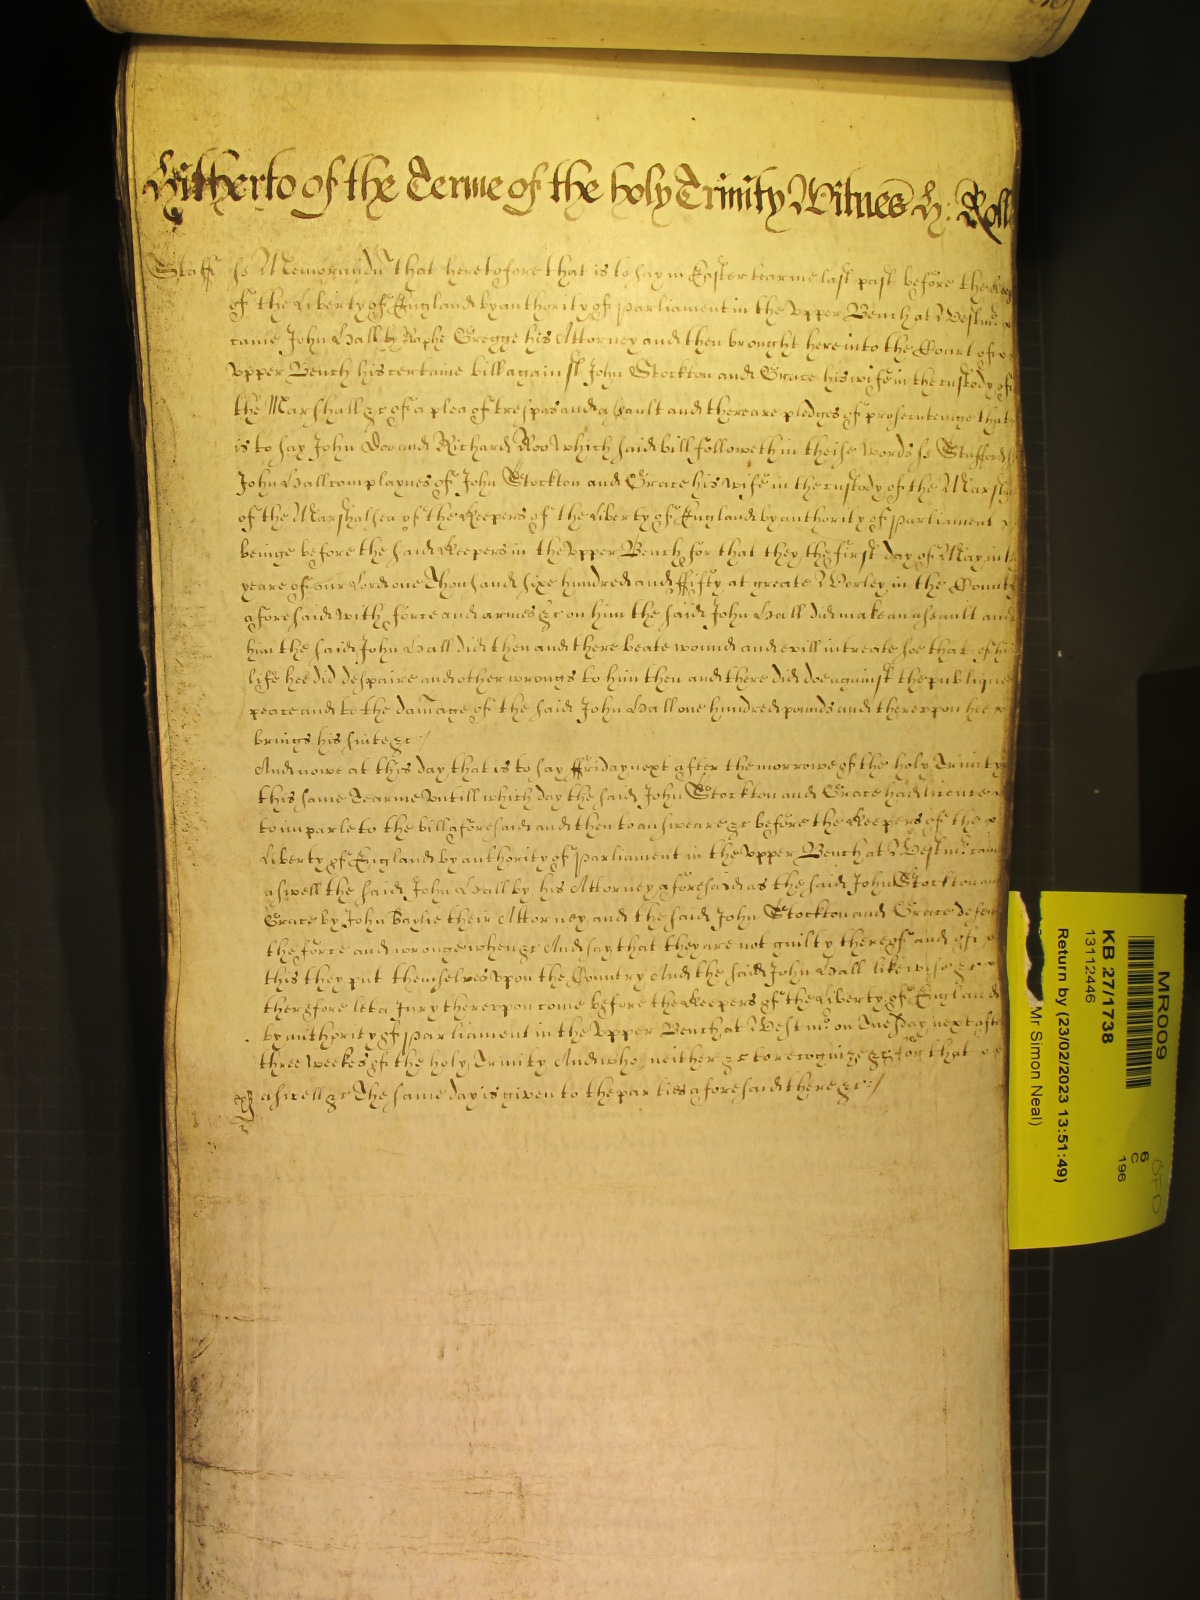 Hitherto of the Terme of the holy Trinity Witnes H: Roll
Staff ss Memorandu that heretofore that is to say in Easter tearme last past before the
of the Liberty of England by authority of Parliament in the Upper Bench at Westm
came John Hall by Raphe Gregge his Attorney and then brought here into the Court of
Upper Bench his certaine bill against John Stockton and Grace his wife in the custody of
the Marshall &c of a plea of trespas and assault and there are pledges of prosecuteinge that
is to say John Doo and Richard Roo which said bill followeth in theise words ss Stafford
John Hall complaynes of John Stockton and Grace his wife in the custody of the Marsh
of the Marshalsea of the Keepers of the Liberty of England by authority of Parliament
beinge before the said Keepers in the Upper Bench for that they the first day of May in
yeare of our Lord one Thousand sixe hundred and ffifty at greate Worley in the County
aforesaid with force and armes &c on him the said John Hall did make an assault and
him the said John Hall did then and there beate wound and evill intreate soe that of his
life hee did despaire and other wrongs to him then and there did doe against the publique
peace and to the damage of the said John Hall one hundred pounds and thereupon hee
brings his suite &c /
And nowe at this day that is to say ffriday next after the morrowe of the holy Trinity
this same Tearme Untill which day the said John Stockton and Grace had licence
to imparle to the bill aforesaid and then to answeare &c before the Keepers of the
Liberty of England by authority of Parliament in the Upper Bench at Westm: came
aswell the said John Hall by his Attorney aforesaid as the said John Stockton and
Grace by John Baylie their Attorney and the said John Stockton and Grace defen
the force and wronge when &c And say that they are not guilty thereof and of
this they put themselves upon the Country And the said John Hall likewise &c
therefore let a Jury thereupon come before the Keepers of the Liberty of England
by authority of Parliament in the Upper Bench at Westm: on Tuesday next after
three weekes of the holy Trinity And who neither &c to recognize &c for that
aswell &c The same day is given to the parties aforesaid there &c: /
MR009
6
C
196
KB 27/1738
13112446
Return by (23/02/2023 13:51:49)
Mr Simon Neal)